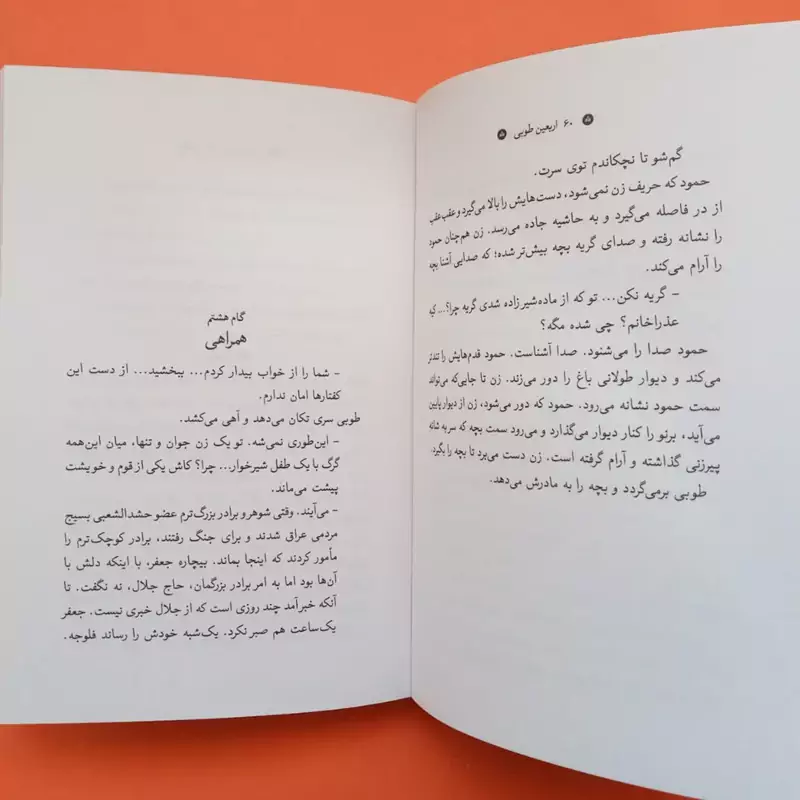 ۶۰ اربعین طوبی
گم‌شو تا نچکاندم توی سرت.
حمود که حریف زن نمی‌شود، دست‌هایش را بالا می‌گیرد و عقب‌عقب
از در فاصله می‌گیرد و به حاشیه جاده می‌رسد. زن هم‌چنان حمود
را نشانه رفته و صدای گریه بچه بیش‌تر شده؛ که صدایی آشنا بچه
را آرام می‌کند.
- گریه نکن... تو که از ماده‌شیر زاده شدی گریه چرا؟... کیه
عذراخانم؟ چی شده مگه؟
حمود صدا را می‌شنود. صدا آشناست. حمود قدم‌هایش را تندتر
می‌کند و دیوار طولانی باغ را دور می‌زند. زن تا جایی‌که می‌تواند
سمت حمود نشانه می‌رود. حمود که دور می‌شود، زن از دیوار پایین
می‌آید، برنو را کنار دیوار می‌گذارد و می‌رود سمت بچه که سر به شانه
پیرزنی گذاشته و آرام گرفته است. زن دست می‌برد تا بچه را بگیرد.
طوبی برمی‌گردد و بچه را به مادرش می‌دهد.
گام هشتم
همراهی
- شما را از خواب بیدار کردم... ببخشید... از دست این
کفتارها امان ندارم.
طوبی سری تکان می‌دهد و آهی می‌کشد.
- این‌طوری نمی‌شه. تو یک زن جوان و تنها، میان این‌همه
گرگ با یک طفل شیرخوار... چرا؟ کاش یکی از قوم و خویشت
پیشت می‌ماند.
- می‌آیند. وقتی شوهر و برادر بزرگ‌ترم عضو حشدالشعبی بسیج
مردمی عراق شدند و برای جنگ رفتند، برادر کوچک‌ترم را
مأمور کردند که اینجا بماند. بیچاره جعفر، با اینکه دلش با
آن‌ها بود اما به امر برادر بزرگمان، حاج جلال، نه نگفت. تا
آنکه خبر آمد چند روزی است که از جلال خبری نیست. جعفر
یک‌ساعت هم صبر نکرد. یک‌شبه خودش را رساند فلوجه.